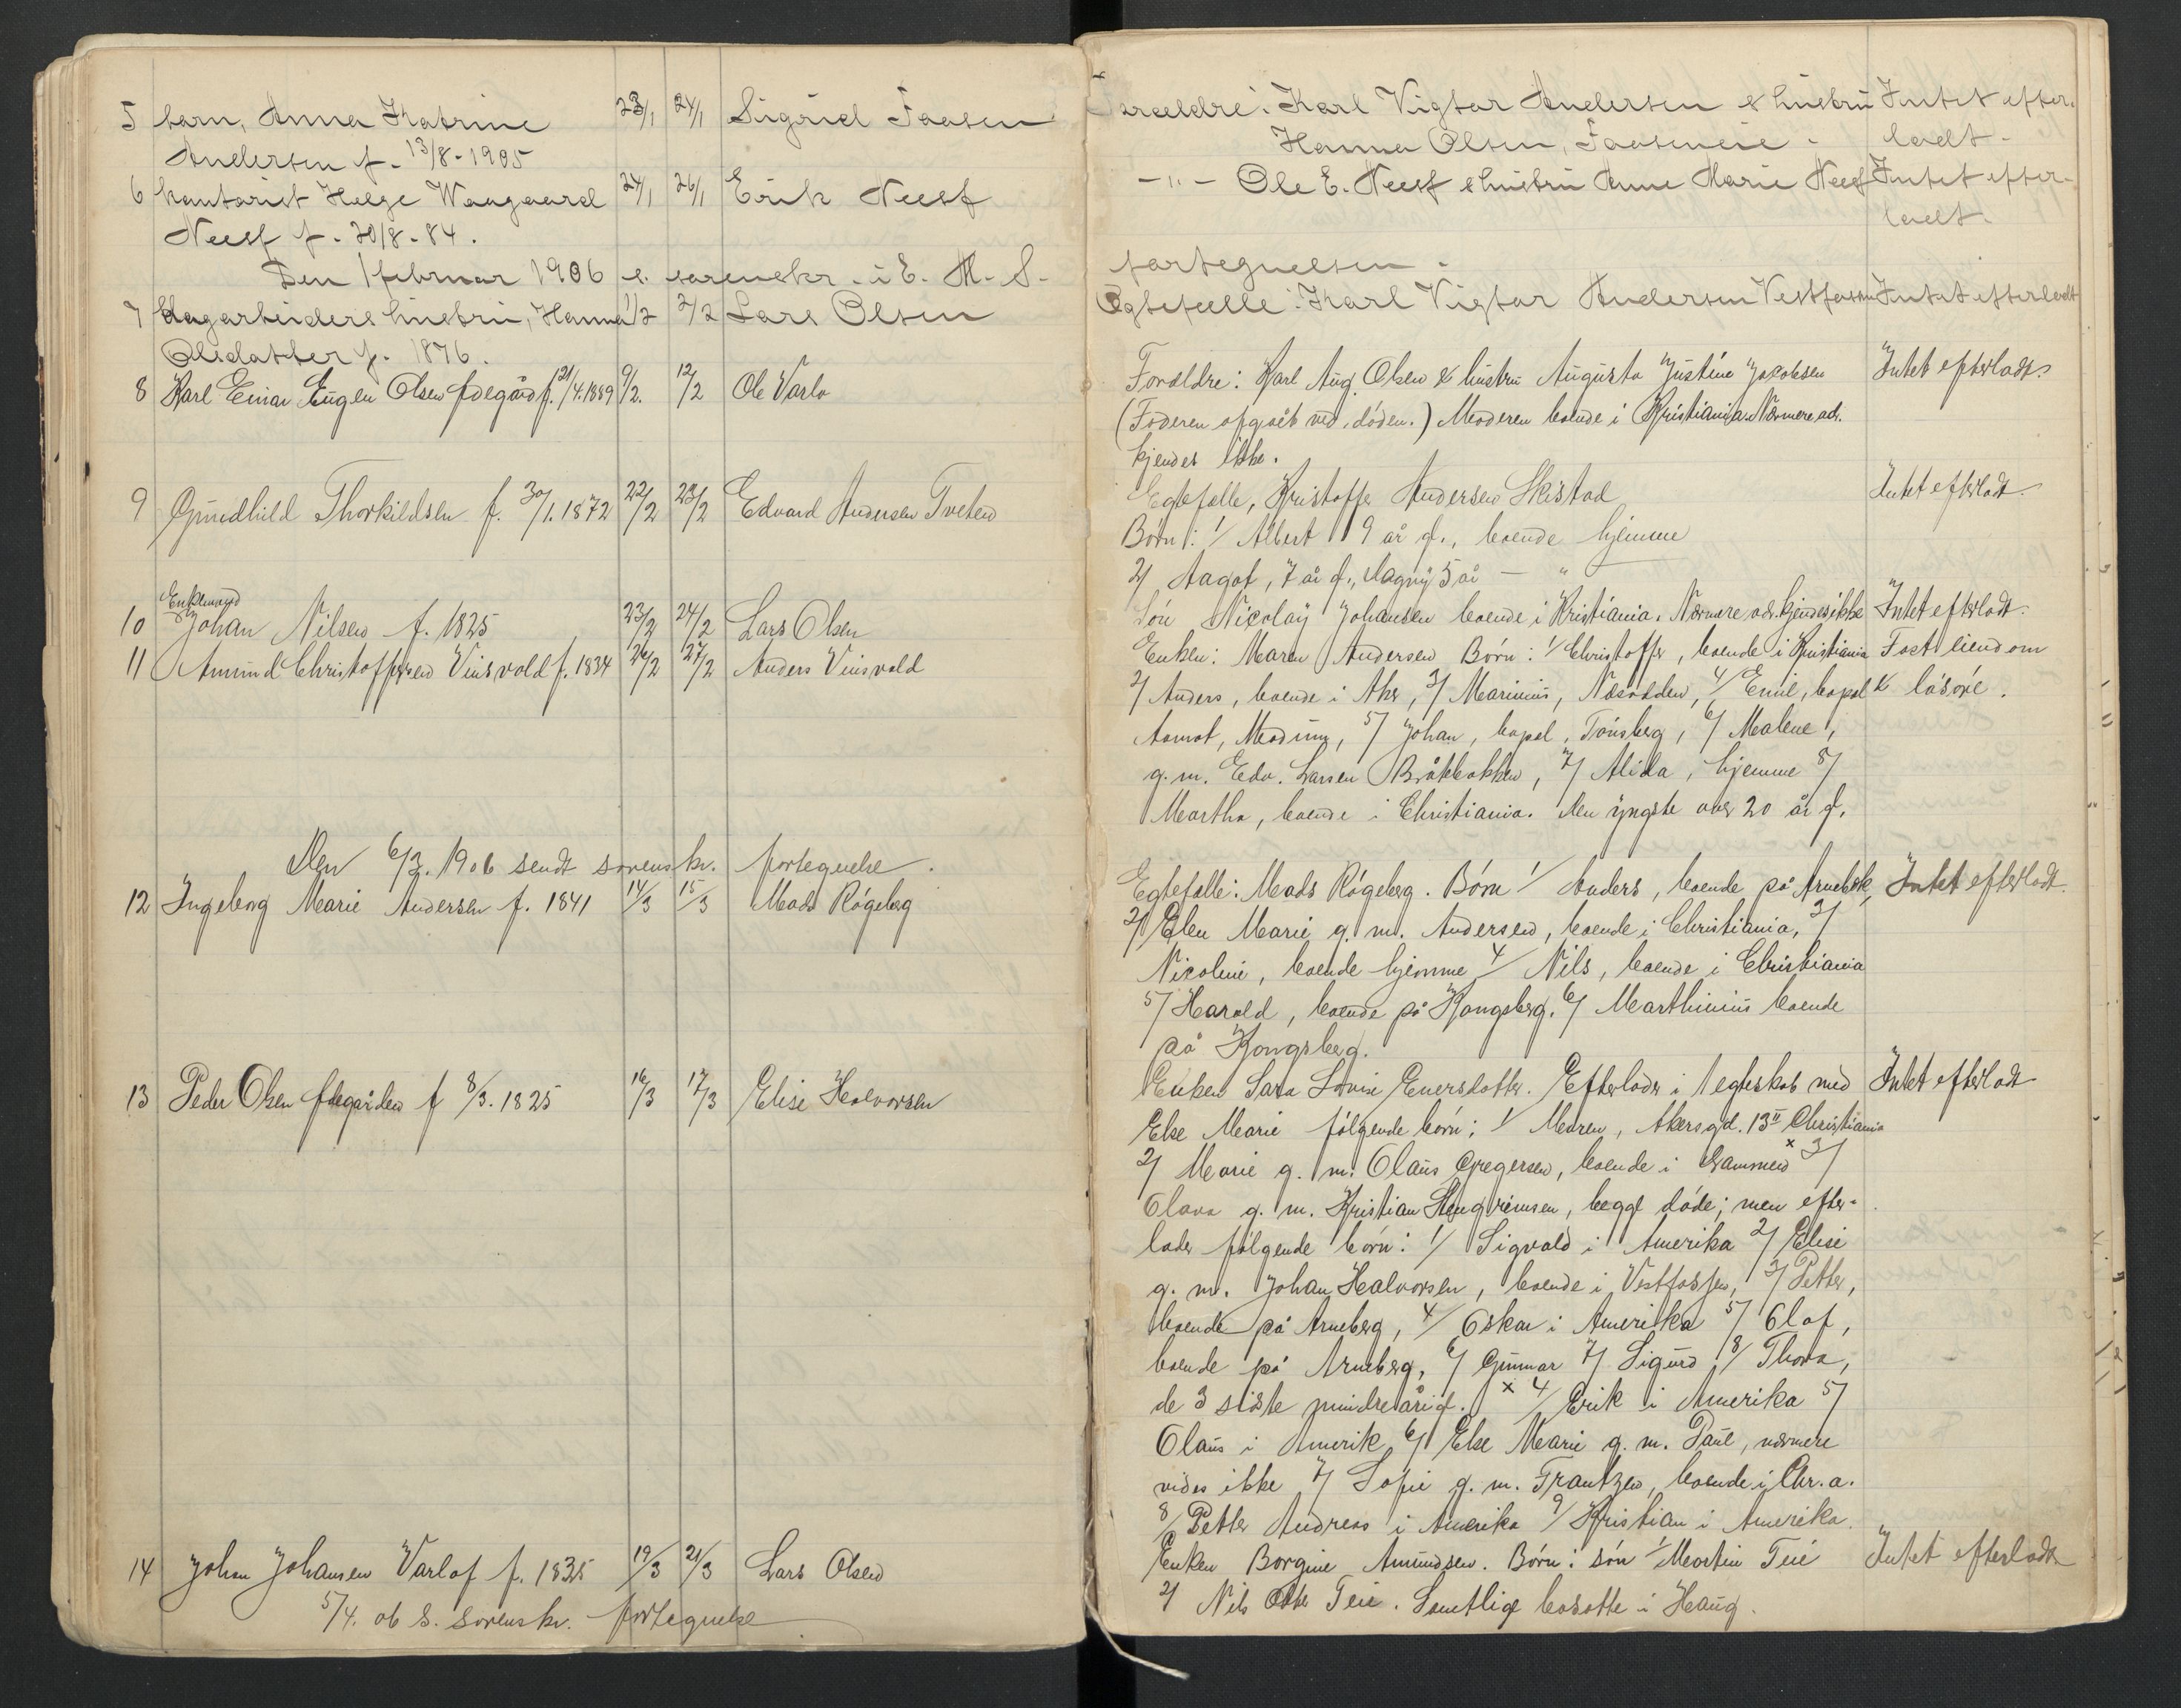 5 barn, Anna Katrine 23/1 24/1 Sigrid Faasen
Andersen f. 13/8-1905
6 kontorist Helge Waagaard 24/1 26/1 Erik Neess
Neess f. 20/8-84.
Den 1 februar 1906 s. sorenskr. i E. M. S.
7 dagarbeiders hustru, Hanna 1/2 2/2 Lars Olsen
Olsdatter f. 1876.
8 Karl Einar Eugen Olsen Ødegård f. 21/4.1889 9/2. 12/2 Ole Varlo
9 Gundhild Thorkildsen f. 30/1.1872 22/2 23/2 Edvard Andersen Tveten
Enkemand
10 Johan Nilsen f. 1825 23/2 24/2 Lars Olsen
11 Amund Christoffersen Vinsvold f. 1834 26/2 27/2 Anders Vinsvold
Den 6/3. 1906 sendt sorenskr. fortegnelse.
12 Ingeborg Marie Andersen f. 1841 14/3 15/3 Mads Rógeberg
13 Peder Olsen Ødegården f 8/3. 1825 16/3 17/3 Elise Halvorsen
14 Johan Johansen Varlof f. 1835 19/3 21/3 Lars Olsen
5/4. ob s. sorenskr. fortegnelse
Forældre: Karl Vigtor Andersen & hustru Intet efter-
Hanna Olsen, Faaseneie - ladt-
-"- Ole E. Neess & hustru Anne Marie Neess Intet efter-
ladt.
fortegnelsen -
Ægtefælle: Karl Vigtor Andersen Vestfossen Intet efterladt
Forældre: Karl Aug. Olsen & hustru Augusta Justine Jacobsen Intet efterladt.
(Faderen afgåèt ved døden.) Moderen boende i Kristiania. Nærmere ad.
kjendes ikke.
Egtefælle, Kristoffer Andersen Skistad Intet efterladt.
Børn: 1/ Albert 9 år gl., boende hjemme
2/ Aagot, 7 år gl., Dagny 5 år — "
Són Nicolay Johansen boende i Kristiania. Nærmere adr. kjendes ikke Intet efterladt.
Enken: Maren Andersen Børn: 1/ Christoffer, boende i Kristiania Fast eiendom
2/ Anders, boende i Aker, 3/ Marinius, Næsodden, 4/ Emil, bopæl & lösóre.
Aamot, Modum, 5/ Johan, bopæl, Tónsberg, 6/ Malene,
g. m. Edv. Larsen Bråkbakken, 7/ Alida, hjemme 8/
Martha, boende i Christiania. Den yngste over 20 år gl.
Egtefælle: Mads Rógeberg. Børn 1/ Anders, boende på Arneberg, Intet efterladt.
2/ Elen Marie g. m. Andersen, boende i Christiania, 3/
Nicoline, boende hjemme 4/ Nils, boende i Christiania
5/ Harald, boende på Kongsberg. 6/ Marthinius boende
på Kongsberg.
Enken Sara Lovise Enersdatter. Efterlader i 1 egteskab med Intet efterladt
Else Marie følgende børn; 1/ Maren, Akersgd. 13II Christiania
2/ Marie g. m. Olaus Gregersen, boende i Drammen x 3/
Olava g. m. Kristian Stengrimsen, begge døde; men efter-
lader følgende børn: 1/ Sigvald i Amerika 2/ Elise
g. m. Johan Halvorsen, boende i Vestfossen, 3/ Petter,
boende på Arneberg, 4/ Oskar i Amerika 5/ Olaf,
boende på Arneberg, 6/ Gunnar 7/ Sigurd 8/ Thora,
de 3 sidste mindreårige. x 4/ Erik i Amerika 5/
Olaus i Amerik 6/ Else Marie g. m. Paul, nærmere
vides ikke 7/ Sofie g. m. Frantzen, boende i Chr.a.
8/ Petter Andreas i Amerika 9/ Kristian i Amerika.
Enken Borgine Amundsen. Børn: són 1/ Martin Teie Intet efterladt
2/ Nils Otto Teie. Samtlige bosatte i Haug.